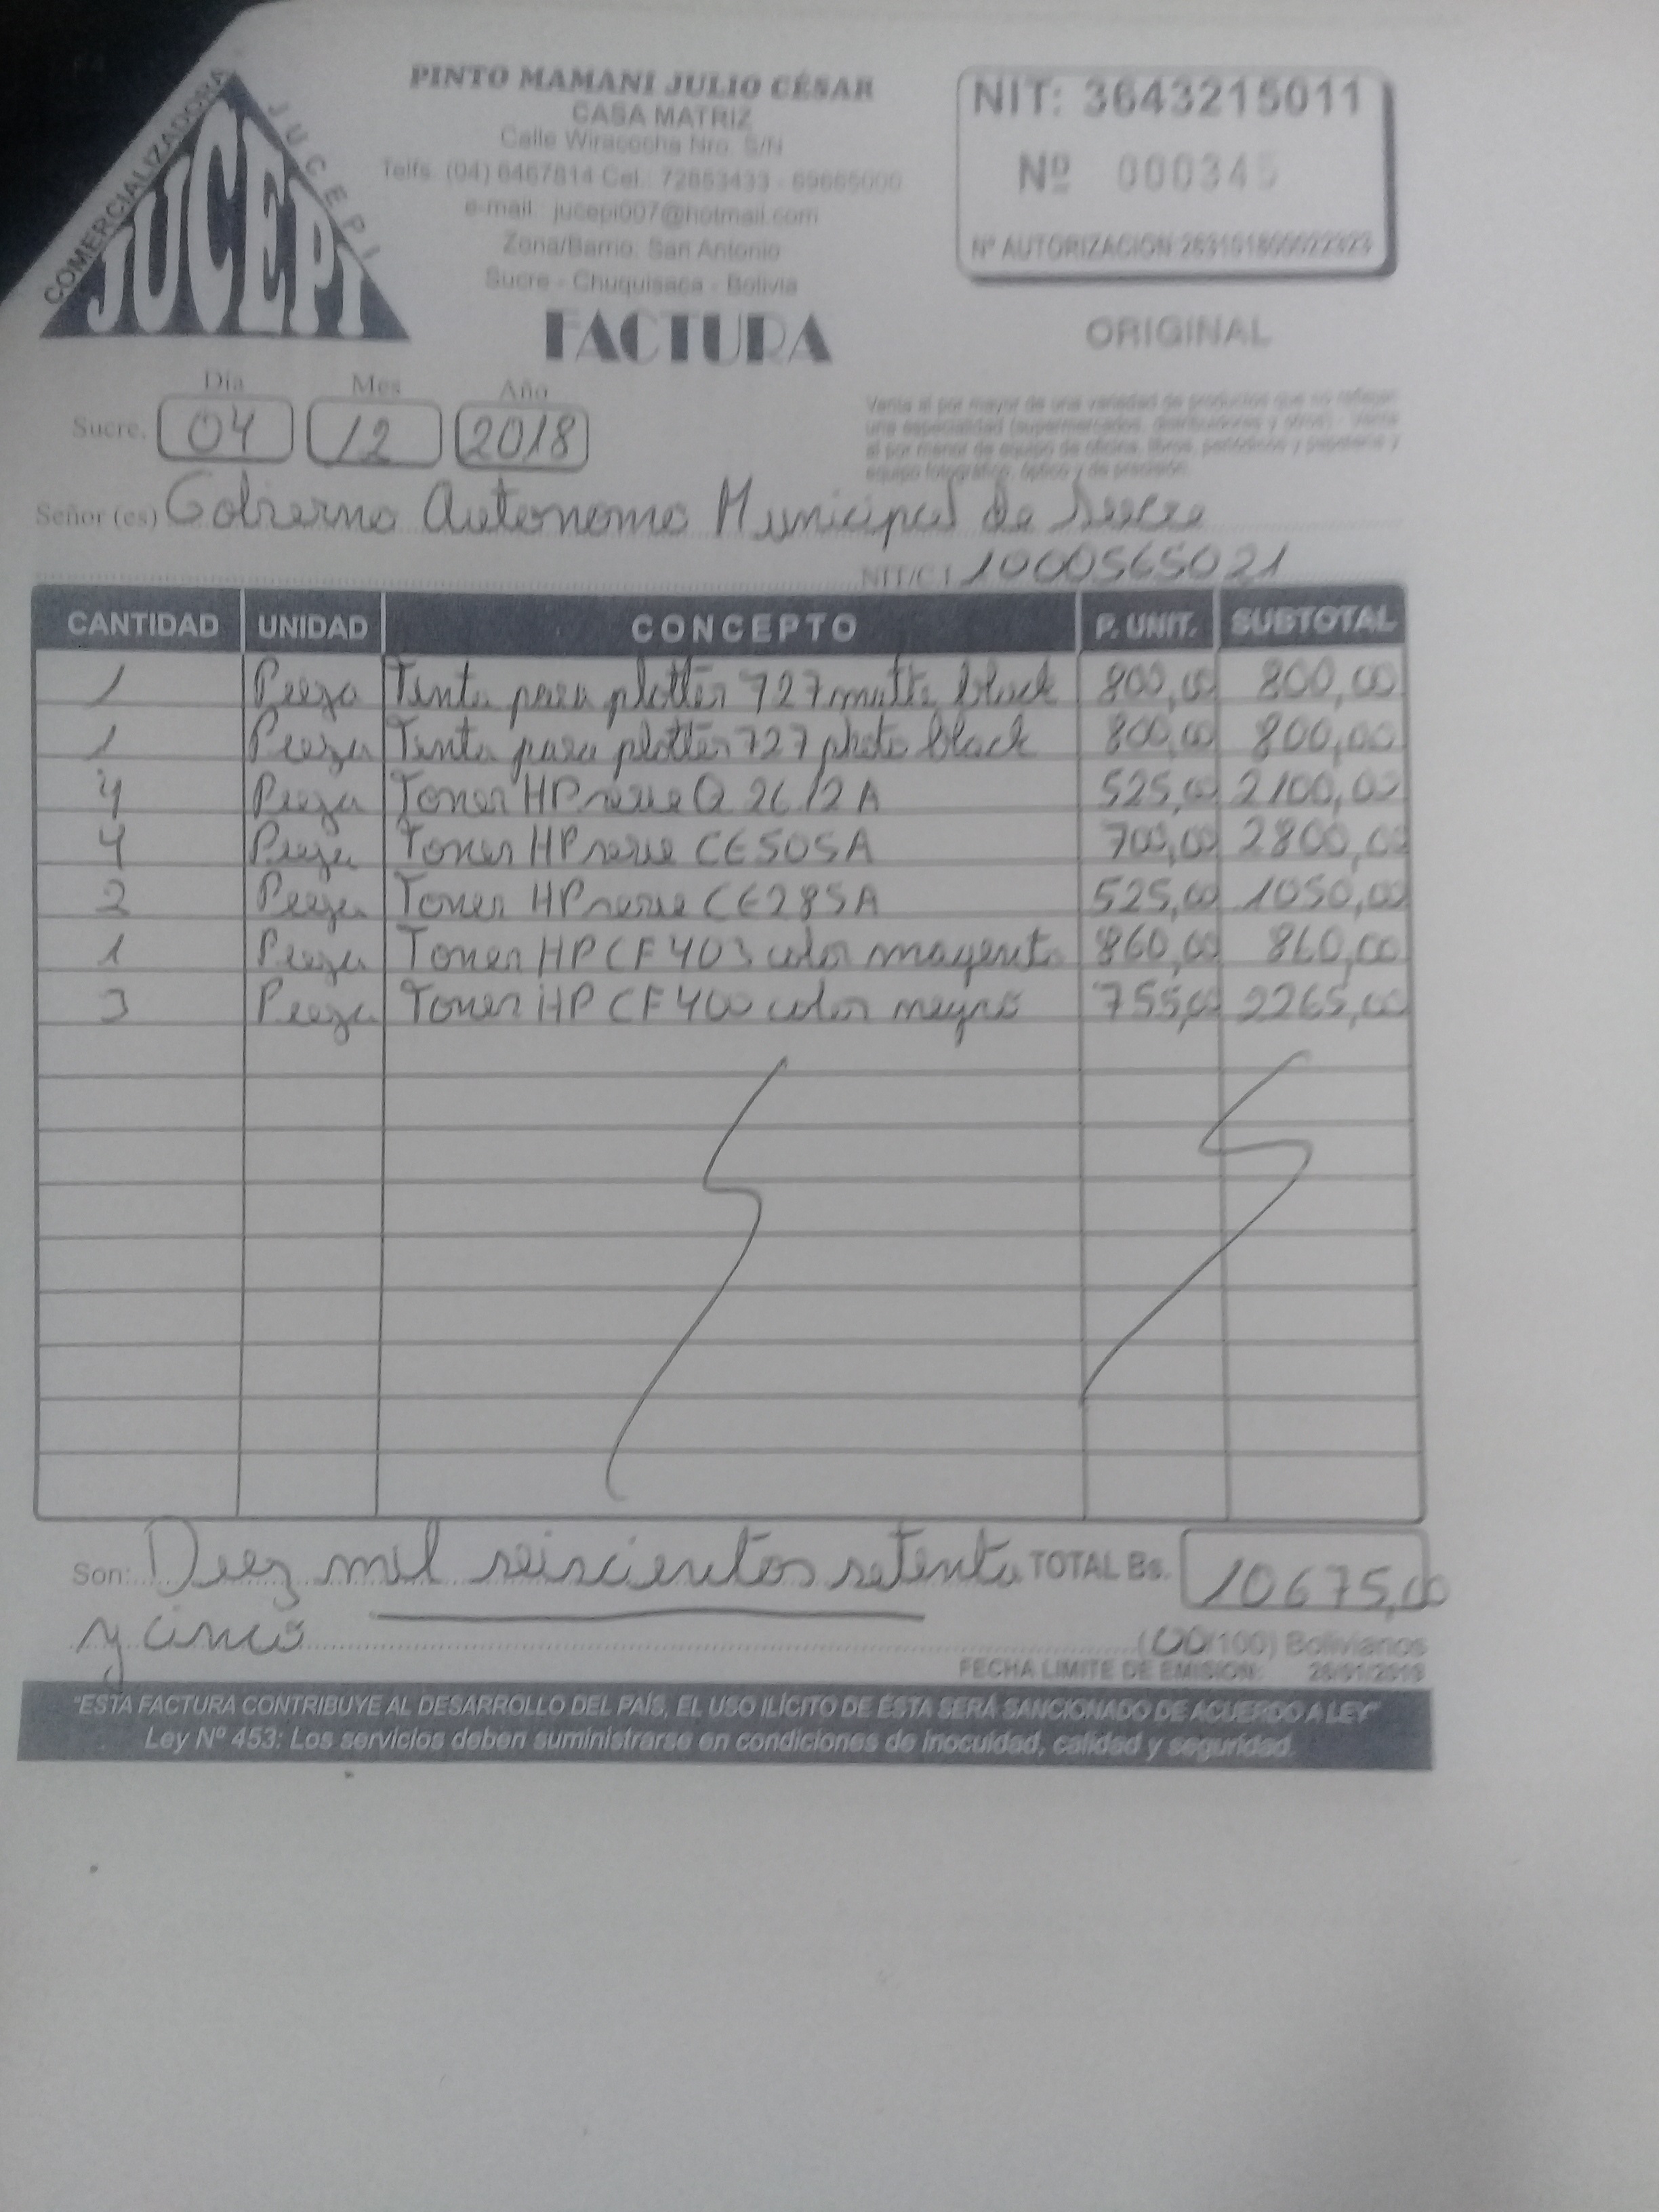 COMERCIALIZADORA
JUCEPI
JUCEPI
PINTO MAMANI JULIO CÉSAR
CASA MATRIZ
Calle Wiracocha Nro. S/N
Telfs. (04) 6467814 Cel.: 72863433 - 69665000
e-mail: jucepi007@hotmail.com
Zona/Barrio: San Antonio
Sucre - Chuquisaca - Bolivia
FACTURA
NIT: 3643215011
Nº 000345
Nº AUTORIZACION
ORIGINAL
Venta al por mayor de una variedad de productos que no reflejan
una especialidad (supermercados, distribuidores y otros) - Venta
al por menor de equipo de oficina, libros, periódicos y papelería y
equipo fotográfico, óptico y de precisión.
Día Mes Año
Sucre, 04 12 2018
Señor (es) Gobierno Autonomo Municipal de Sucre
NIT/C.I 1000565021
CANTIDAD UNIDAD CONCEPTO P. UNIT. SUBTOTAL
1 Pieza Tinta para plotter 727 matte black 800,00 800,00
1 Pieza Tinta para plotter 727 photo black 800,00 800,00
4 Pieza Toner HP serie Q 2612 A 525,00 2100,00
4 Pieza Toner HP serie CE505A 700,00 2800,00
2 Pieza Toner HP serie CE285A 525,00 1050,00
1 Pieza Toner HP CF403 color magenta 860,00 860,00
3 Pieza Toner HP CF400 color negro 755,00 2265,00
Son: Diez mil seiscientos setenta TOTAL Bs. 10675,00
y cinco (00/100) Bolivianos
FECHA LIMITE DE EMISION: 26/01/2019
"ESTA FACTURA CONTRIBUYE AL DESARROLLO DEL PAÍS, EL USO ILÍCITO DE ÉSTA SERÁ SANCIONADO DE ACUERDO A LEY"
Ley Nº 453: Los servicios deben suministrarse en condiciones de inocuidad, calidad y seguridad.